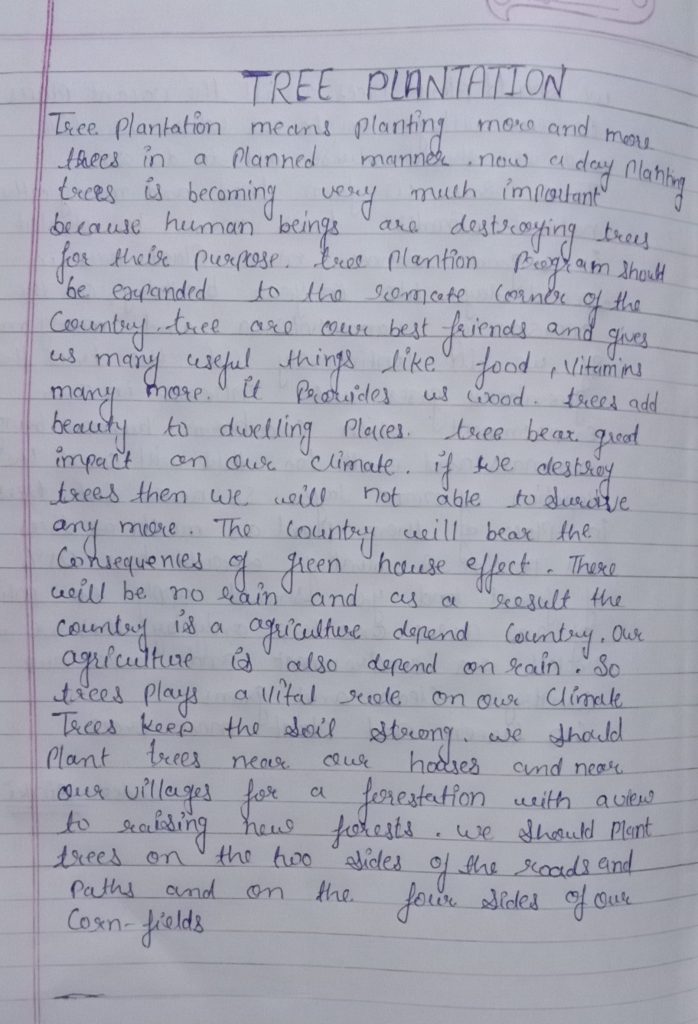 TREE PLANTATION
Tree Plantation means planting more and more
trees in a planned manner. now a day planting
trees is becoming very much important
because human beings are destroying trees
for their purpose. tree plantion program should
be expanded to the remcate corner of the
Country. tree are our best friends and gives
us many useful things like food, vitamins
many more. it Provides us wood. trees add
beauty to dwelling Places. tree bear great
impact on our climate. if we destroy
trees then we will not able to survive
any more. The country will bear the
Consequences of green house effect. There
will be no rain and as a result the
country is a agriculture depend Country. Our
agriculture is also depend on rain. So
trees plays a vital role on our Climate
Trees keep the soil strong. we should
Plant trees near our houses and near
our villages for a forestation with a view
to raising new forests. we should Plant
trees on the two sides of the roads and
Paths and on the four sides of our
Corn-fields